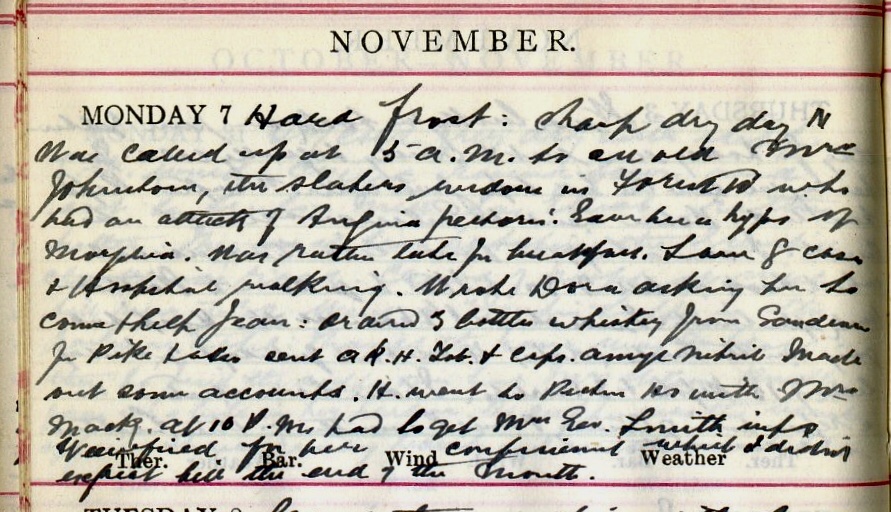 NOVEMBER.
MONDAY 7 Hard frost: sharp dry day N
Was called up at 5 a.m. to an old Mrs
Johnston, the slaters widow in Forest Rd who
had an attack of Angina pectoris. Gave her a hypo of
Morphia. Was rather late for breakfast. Saw 8 cases
& Hospital walking. Wrote Dora asking her to
come & help Jean: ordered 3 bottles whiskey from Sandeman
for Pike sent & caps. amyl nitrit Made
out some accounts. H. went to Ho with Mrs
Mack. at 10 P.M. had to get Mrs Geo. Smith info
Ther. Bar. Wind Weather
for her confinement which I didnt
expect till the end of the month.
TUESDAY 8